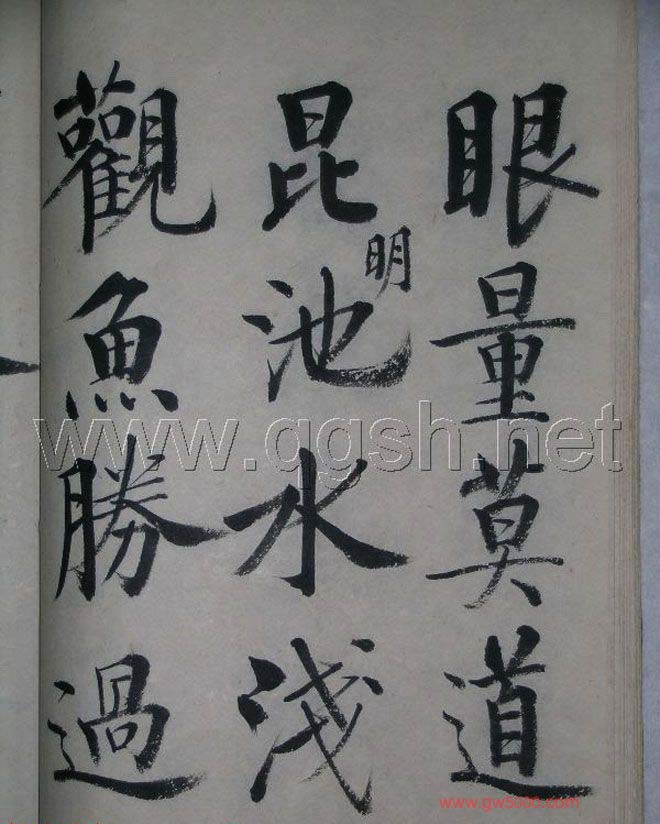 眼量莫道
昆明池水淺
觀魚勝過
www.qgsh.net
www.gw5000.com